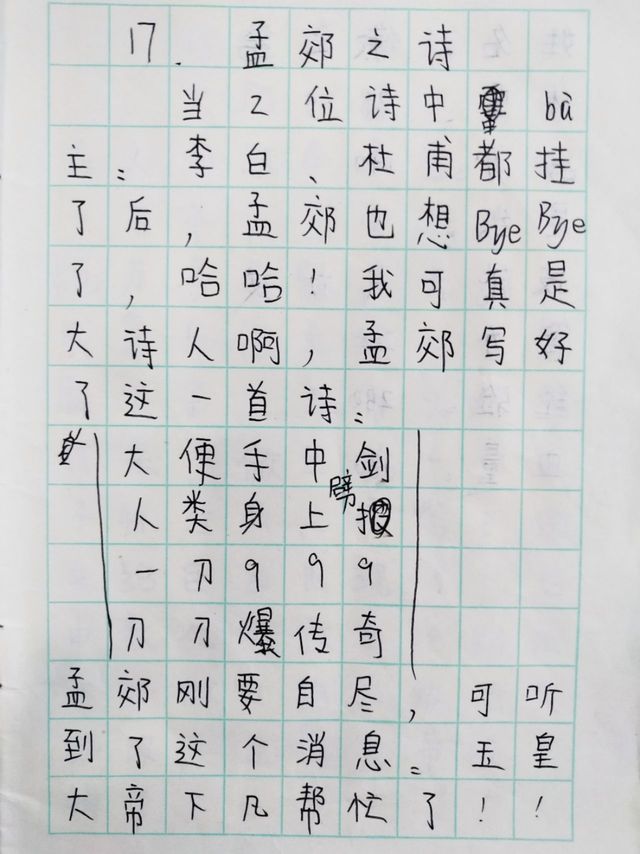 17. 孟郊之诗
当2位诗中 bà
主：李白、杜甫都挂
了后，孟郊也想Bye Bye
了，哈哈！我可真是
大诗人啊，孟郊写好
了这一首诗：
大便手中剑
人类身上劈
一刀999
刀刀爆传奇
孟郊刚要自尽，可听
到了这个消息：玉皇
大帝下凡帮忙了！！